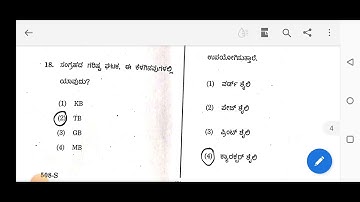 18. ಸಂಗ್ರಹದ ಗರಿಷ್ಠ ಘಟಕ, ಈ ಕೆಳಗಿನವುಗಳಲ್ಲಿ
ಯಾವುದು?
(1) KB
(2) TB
(3) GB
(4) MB
508-S
ಉಪಯೋಗಿಸುತ್ತಾರೆ.
(1) ವರ್ಡ್ ಶೈಲಿ
(2) ಪೇಜ್ ಶೈಲಿ
(3) ಪ್ರಿಂಟ್ ಶೈಲಿ
(4) ಕ್ಯಾರಕ್ಟರ್ ಶೈಲಿ
4